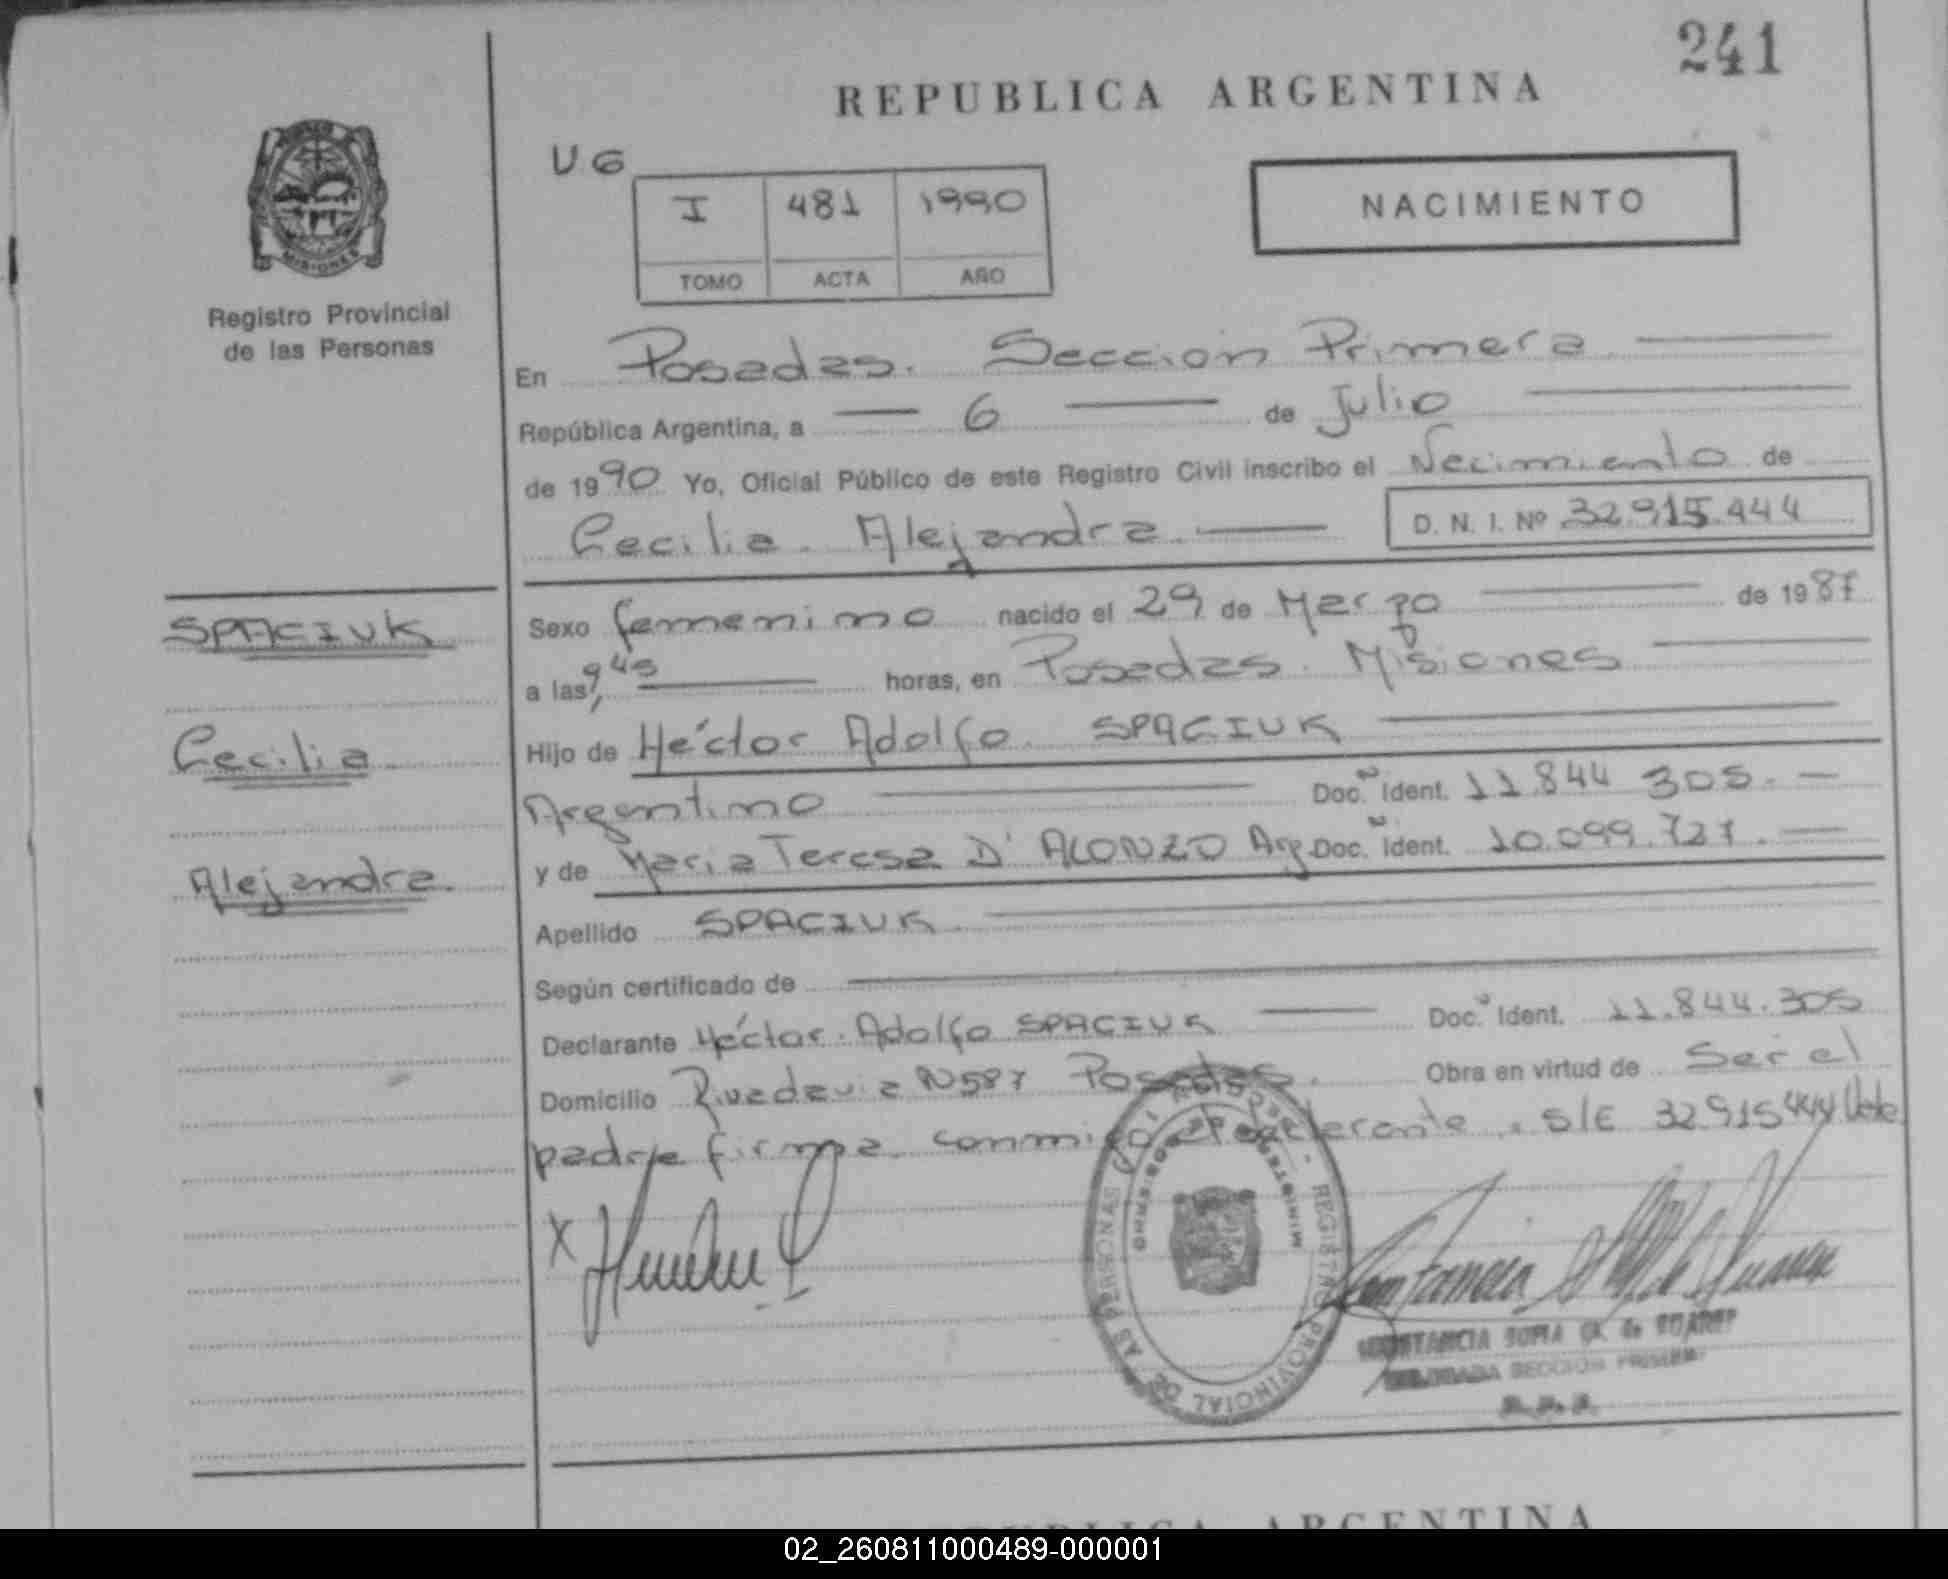 241
REPUBLICA ARGENTINA
MISIONES
Registro Provincial
de las Personas
U6
I 481 1990
TOMO ACTA AÑO
NACIMIENTO
En Posadas. Seccion Primera
República Argentina, a 6 de Julio
de 1990 Yo, Oficial Público de este Registro Civil inscribo el Nacimiento de
Cecilia Alejandra D. N. I. Nº 32.915.444
SPACIUK
Cecilia
Alejandra
Sexo femenino nacido el 29 de Marzo de 1987
a las 9,45 horas, en Posadas. Misiones
Hijo de Héctor Adolfo SPACIUK
Argentino Doc. Ident. 11.844 305.
y de Maria Teresa D' ALONZO Arg. Doc. Ident. 10.099.727.
Apellido SPACIUK
Según certificado de
Declarante Héctor Adolfo SPACIUK Doc. Ident. 11.844.305
Domicilio Rivadavia Nº587 Posadas. Obra en virtud de Ser el
padre firma conmigo el declarante. s/E 32.915444 Vale
X
REGISTRO PROVINCIAL DE LAS PERSONAS
MINISTERIO DE GOBIERNO
CONSTANCIA SOFIA de SUAREZ
DELEGADA SECCION PRIMERA
REPUBLICA ARGENTINA
02_260811000489-000001